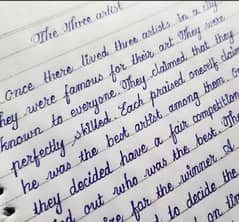 The three artist
Once there lived three artists in a city.
They were famous for their art. They were
known to everyone. They claimed that they
perfectly skilled. Each praised oneself, claim
he was the best artist among them, on
they decided have a fair competition
out who was the best. The
for the winner.
to decide the
on tim